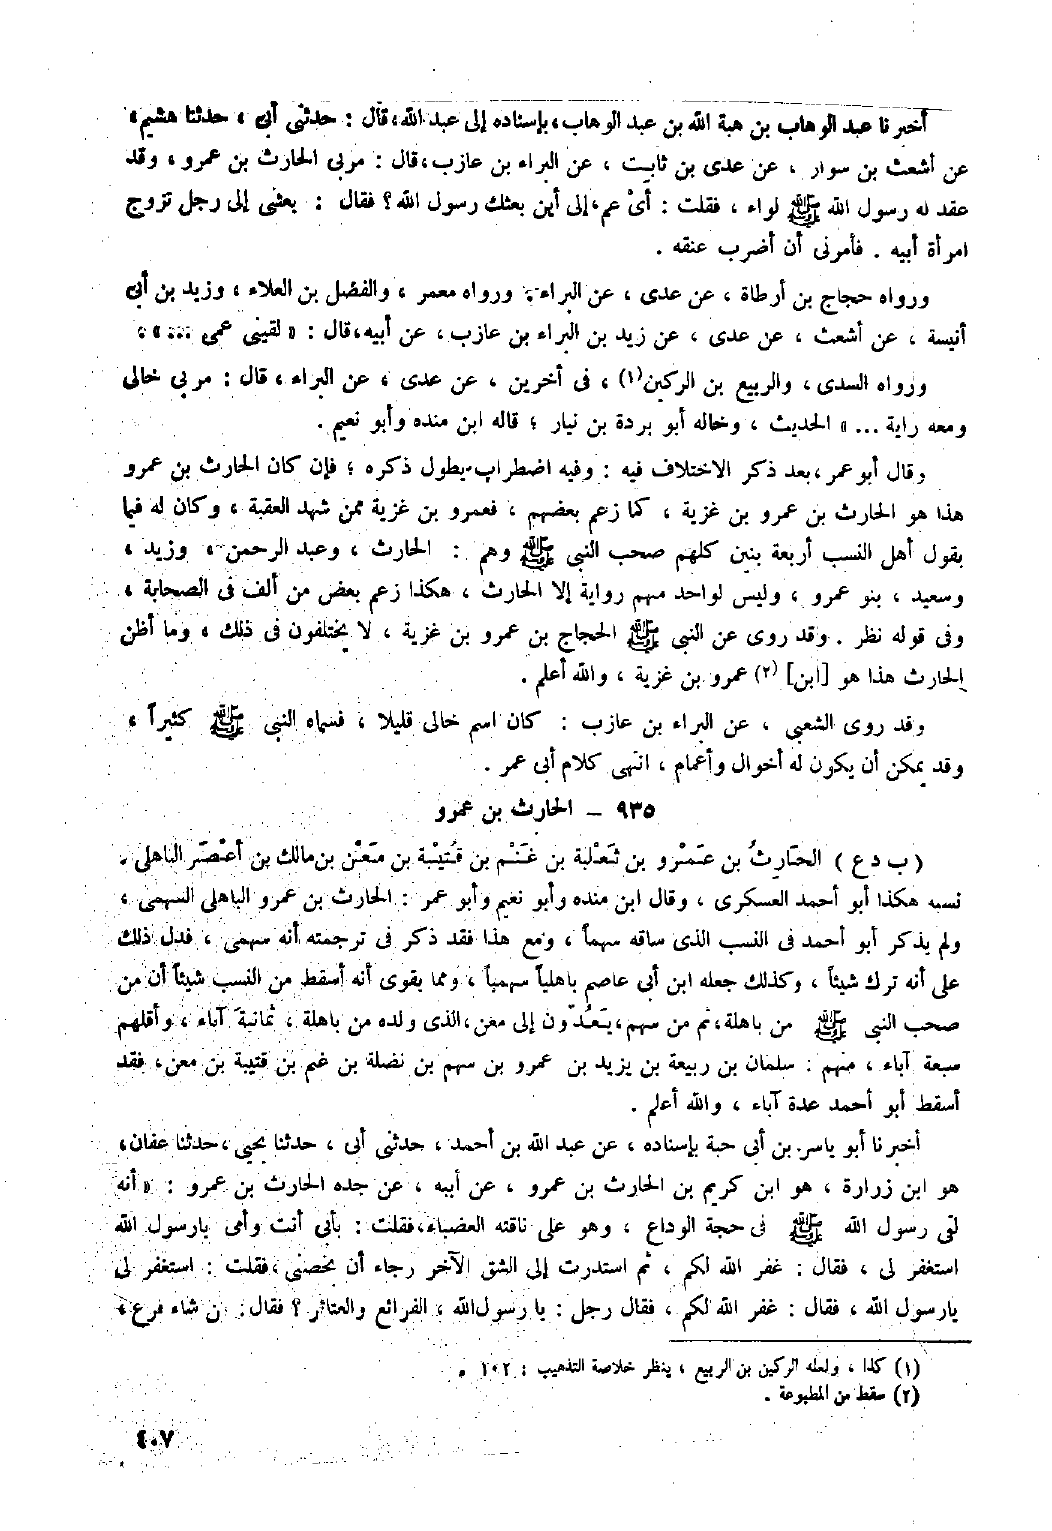 أخبرنا عبد الوهاب بن هبة الله بن عبد الوهاب، بإسناده إلى عبد الله، قال : حدثني أبي ، حدثنا هشيم ،
عن أشعث بن سوار ، عن عدى بن ثابت ، عن البراء بن عازب، قال : مر بي الحارث بن عمرو ، وقد
عقد له رسول الله ﷺ لواء ، فقلت : أىْ عم، إلى أين بعثك رسول الله ؟ فقال : بعثنى إلى رجل تزوج
امرأة أبيه . فأمرنى أن أضرب عنقه .
ورواه حجاج بن أرطاة ، عن عدى ، عن البراء. ورواه معمر ، والفضل بن العلاء ، وزيد بن أبى
أنيسة ، عن أشعث ، عن عدى ، عن زيد بن البراء بن عازب ، عن أبيه، قال : « لقينى عمى ... » .
ورواه السدى ، والربيع بن الركين(١) ، فى آخرين ، عن عدى ، عن البراء ، قال : مر بي خالى
ومعه راية ... » الحديث ، وخاله أبو بردة بن نيار ؛ قاله ابن منده وأبو نعيم .
وقال أبو عمر ، بعد ذكر الاختلاف فيه : وفيه اضطراب يطول ذكره ؛ فإن كان الحارث بن عمرو
هذا هو الحارث بن عمرو بن غزية ، كما زعم بعضهم ، فعمرو بن غزية ممن شهد العقبة ، وكان له فيما
يقول أهل النسب أربعة بنين كلهم صحب النبي ﷺ وهم : الحارث ، وعبد الرحمن ، وزيد ،
وسعيد ، بنو عمرو ، وليس لواحد منهم رواية إلا الحارث ، هكذا زعم بعض من ألف فى الصحابة ،
وفى قوله نظر . وقد روى عن النبي ﷺ الحجاج بن عمرو بن غزية ، لا يختلفون فى ذلك ، وما أظن
الحارث هذا هو [ابن] (٢) عمرو بن غزية ، والله أعلم .
وقد روى الشعبي ، عن البراء بن عازب : كان اسم خالى قليلا ، فسماه النبي ﷺ كثيراً ،
وقد يمكن أن يكون له أخوال وأعمام ، انتهى كلام أبى عمر .
٩٣٥ – الحارث بن عمرو
( ب د ع ) الحَارِثُ بن عَمْرو بن ثَعْلبة بن غَنْم بن قُتَيْبَة بن مَعْن بن مالك بن أعْصَر الباهلى .
نسبه هكذا أبو أحمد العسكرى ، وقال ابن منده وأبو نعيم وأبو عمر : الحارث بن عمرو الباهلى السهمى ،
ولم يذكر أبو أحمد فى النسب الذى ساقه سهماً ، ومع هذا فقد ذكر فى ترجمته أنه سهمى ، فدل ذلك
على أنه ترك شيئاً ، وكذلك جعله ابن أبى عاصم باهلياً سهمياً ، ومما يقوى أنه أسقط من النسب شيئاً أن من
صحب النبي ﷺ من باهلة، ثم من سهم، يَعُدّون إلى معن، الذى ولده من باهلة ، ثمانيةَ آباء ، وأقلهم
سبعة آباء ، منهم : سلمان بن ربيعة بن يزيد بن عمرو بن سهم بن نضلة بن غنم بن قتيبة بن معن ، فقد
أسقط أبو أحمد عدة آباء ، والله أعلم .
أخبرنا أبو ياسر بن أبى حبة بإسناده ، عن عبد الله بن أحمد ، حدثنى أبى ، حدثنا يحيى ، حدثنا عفان،
هو ابن زرارة ، هو ابن كريم بن الحارث بن عمرو ، عن أبيه ، عن جده الحارث بن عمرو : « أنه
لقى رسول الله ﷺ فى حجة الوداع ، وهو على ناقته العضباء، فقلت : بأبى أنت وأمى يارسول الله
استغفر لى ، فقال : غفر الله لكم ، ثم استدرت إلى الشق الآخر رجاء أن يخصنى ، فقلت : استغفر لى
يارسول الله ، فقال : غفر الله لكم ، فقال رجل : يا رسول الله ، الفرائع والعتائر ؟ فقال: من شاء فرع ،
(١) كذا ، ولعله الركين بن الربيع ، ينظر خلاصة التذهيب : ١٠٢ .
(٢) سقط من المطبوعة .
٤٠٧